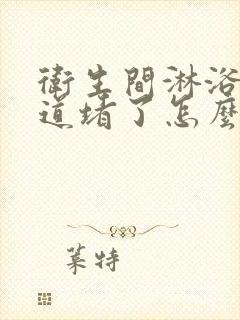 衛生間淋浴
道堵了怎麼
葉特